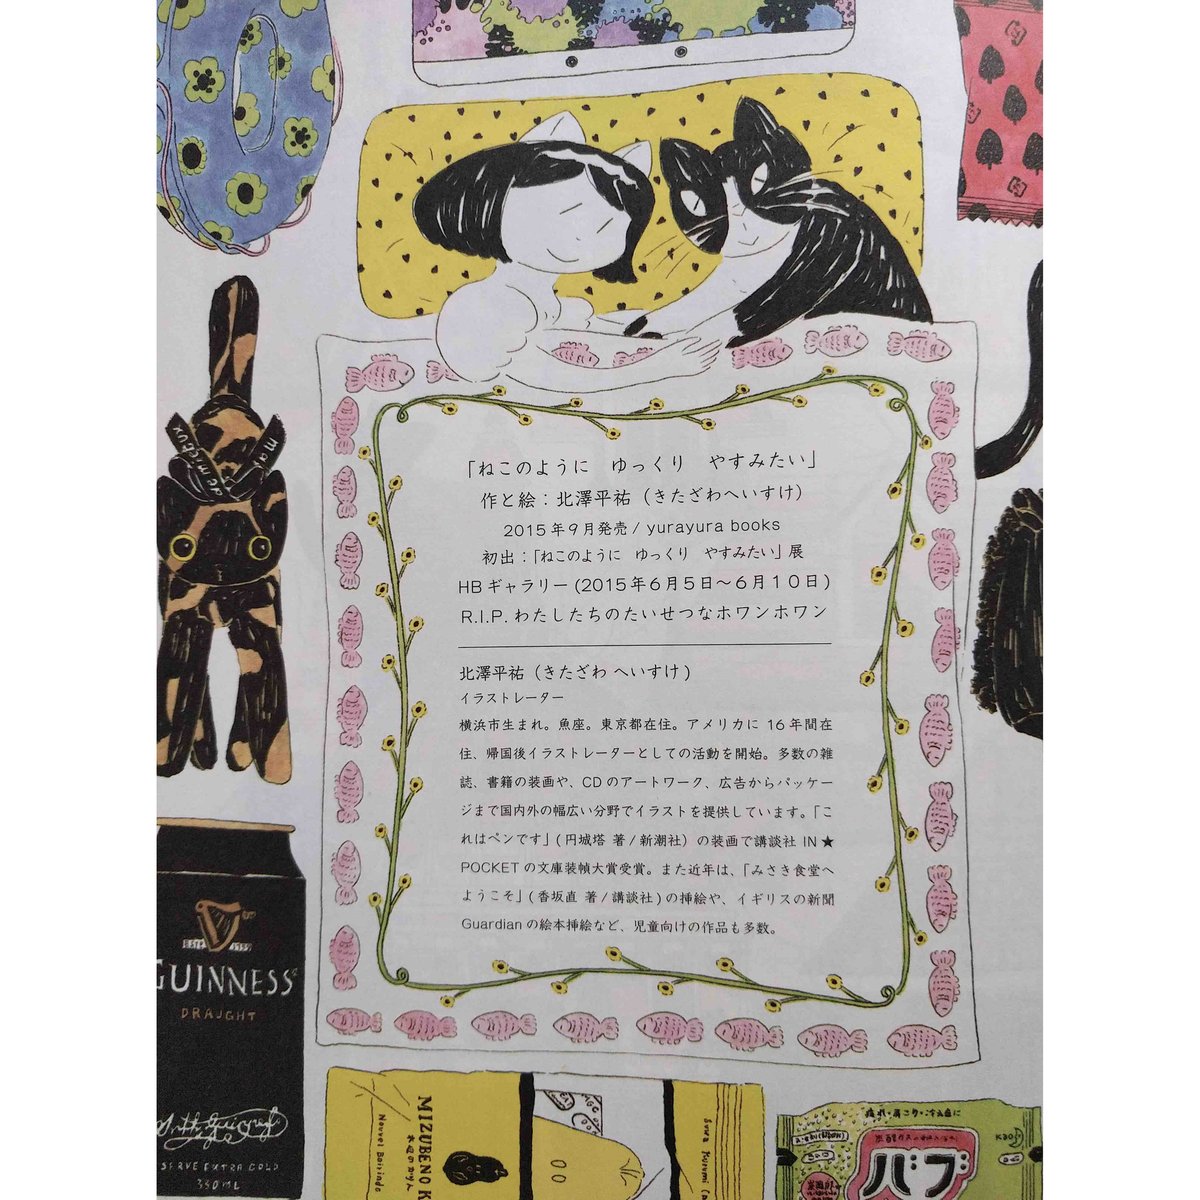 「ねこのように　ゆっくり　やすみたい」
作と絵：北澤平祐（きたざわへいすけ）
2015年9月発売 / yurayura books
初出：「ねこのように　ゆっくり　やすみたい」展
HBギャラリー(2015年6月5日～6月10日)
R.I.P. わたしたちのたいせつなホワンホワン
北澤平祐（きたざわ へいすけ)
イラストレーター
横浜市生まれ。魚座。東京都在住。アメリカに 16 年間在
住、帰国後イラストレーターとしての活動を開始。多数の雑
誌、書籍の装画や、CDのアートワーク、広告からパッケー
ジまで国内外の幅広い分野でイラストを提供しています。「こ
れはペンです」(円城塔 著/新潮社）の装画で講談社 IN★
POCKETの文庫装幀大賞受賞。また近年は、「みさき食堂へ
ようこそ」(香坂直 著/講談社)の挿絵や、イギリスの新聞
Guardianの絵本挿絵など、児童向けの作品も多数。
GUINNESS
DRAUGHT
SERVE EXTRA COLD
330ML
MIZUBENO K
水辺の
疲れ・肩こり・冷え症に
Kao
バブ